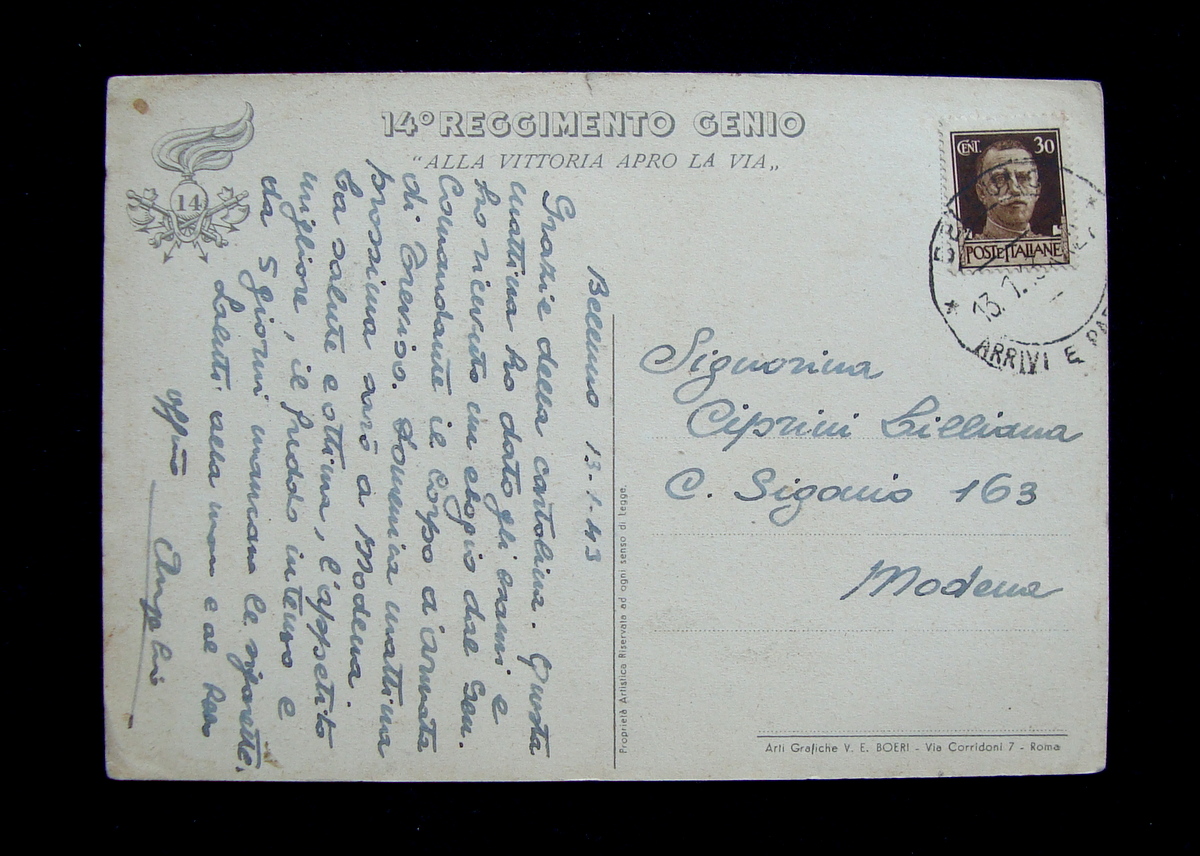 14º REGGIMENTO GENIO
"ALLA VITTORIA APRO LA VIA„
14
CENT. 30
POSTE ITALIANE
13.1.
ARRIVI E PAR
Belluno 13-1-43
Grazie della cartolina. Questa
mattina ho dato gli esami e
ho ricevuto un elogio dal Gen.
Comandante il Corpo d'armata
di Treviso. Domenica mattina
prossima sarò a Modena.
La salute è ottima, l'appetito
migliore, il freddo intenso e
da 5 giorni mancano le sigarette.
Saluti alla mamma e al
Signorina
Ciprini Lilliana
C. Sigonio 163
Modena
Proprietà Artistica Riservata ad ogni senso di Legge.
Arti Grafiche V. E. BOERI - Via Corridoni 7 - Roma